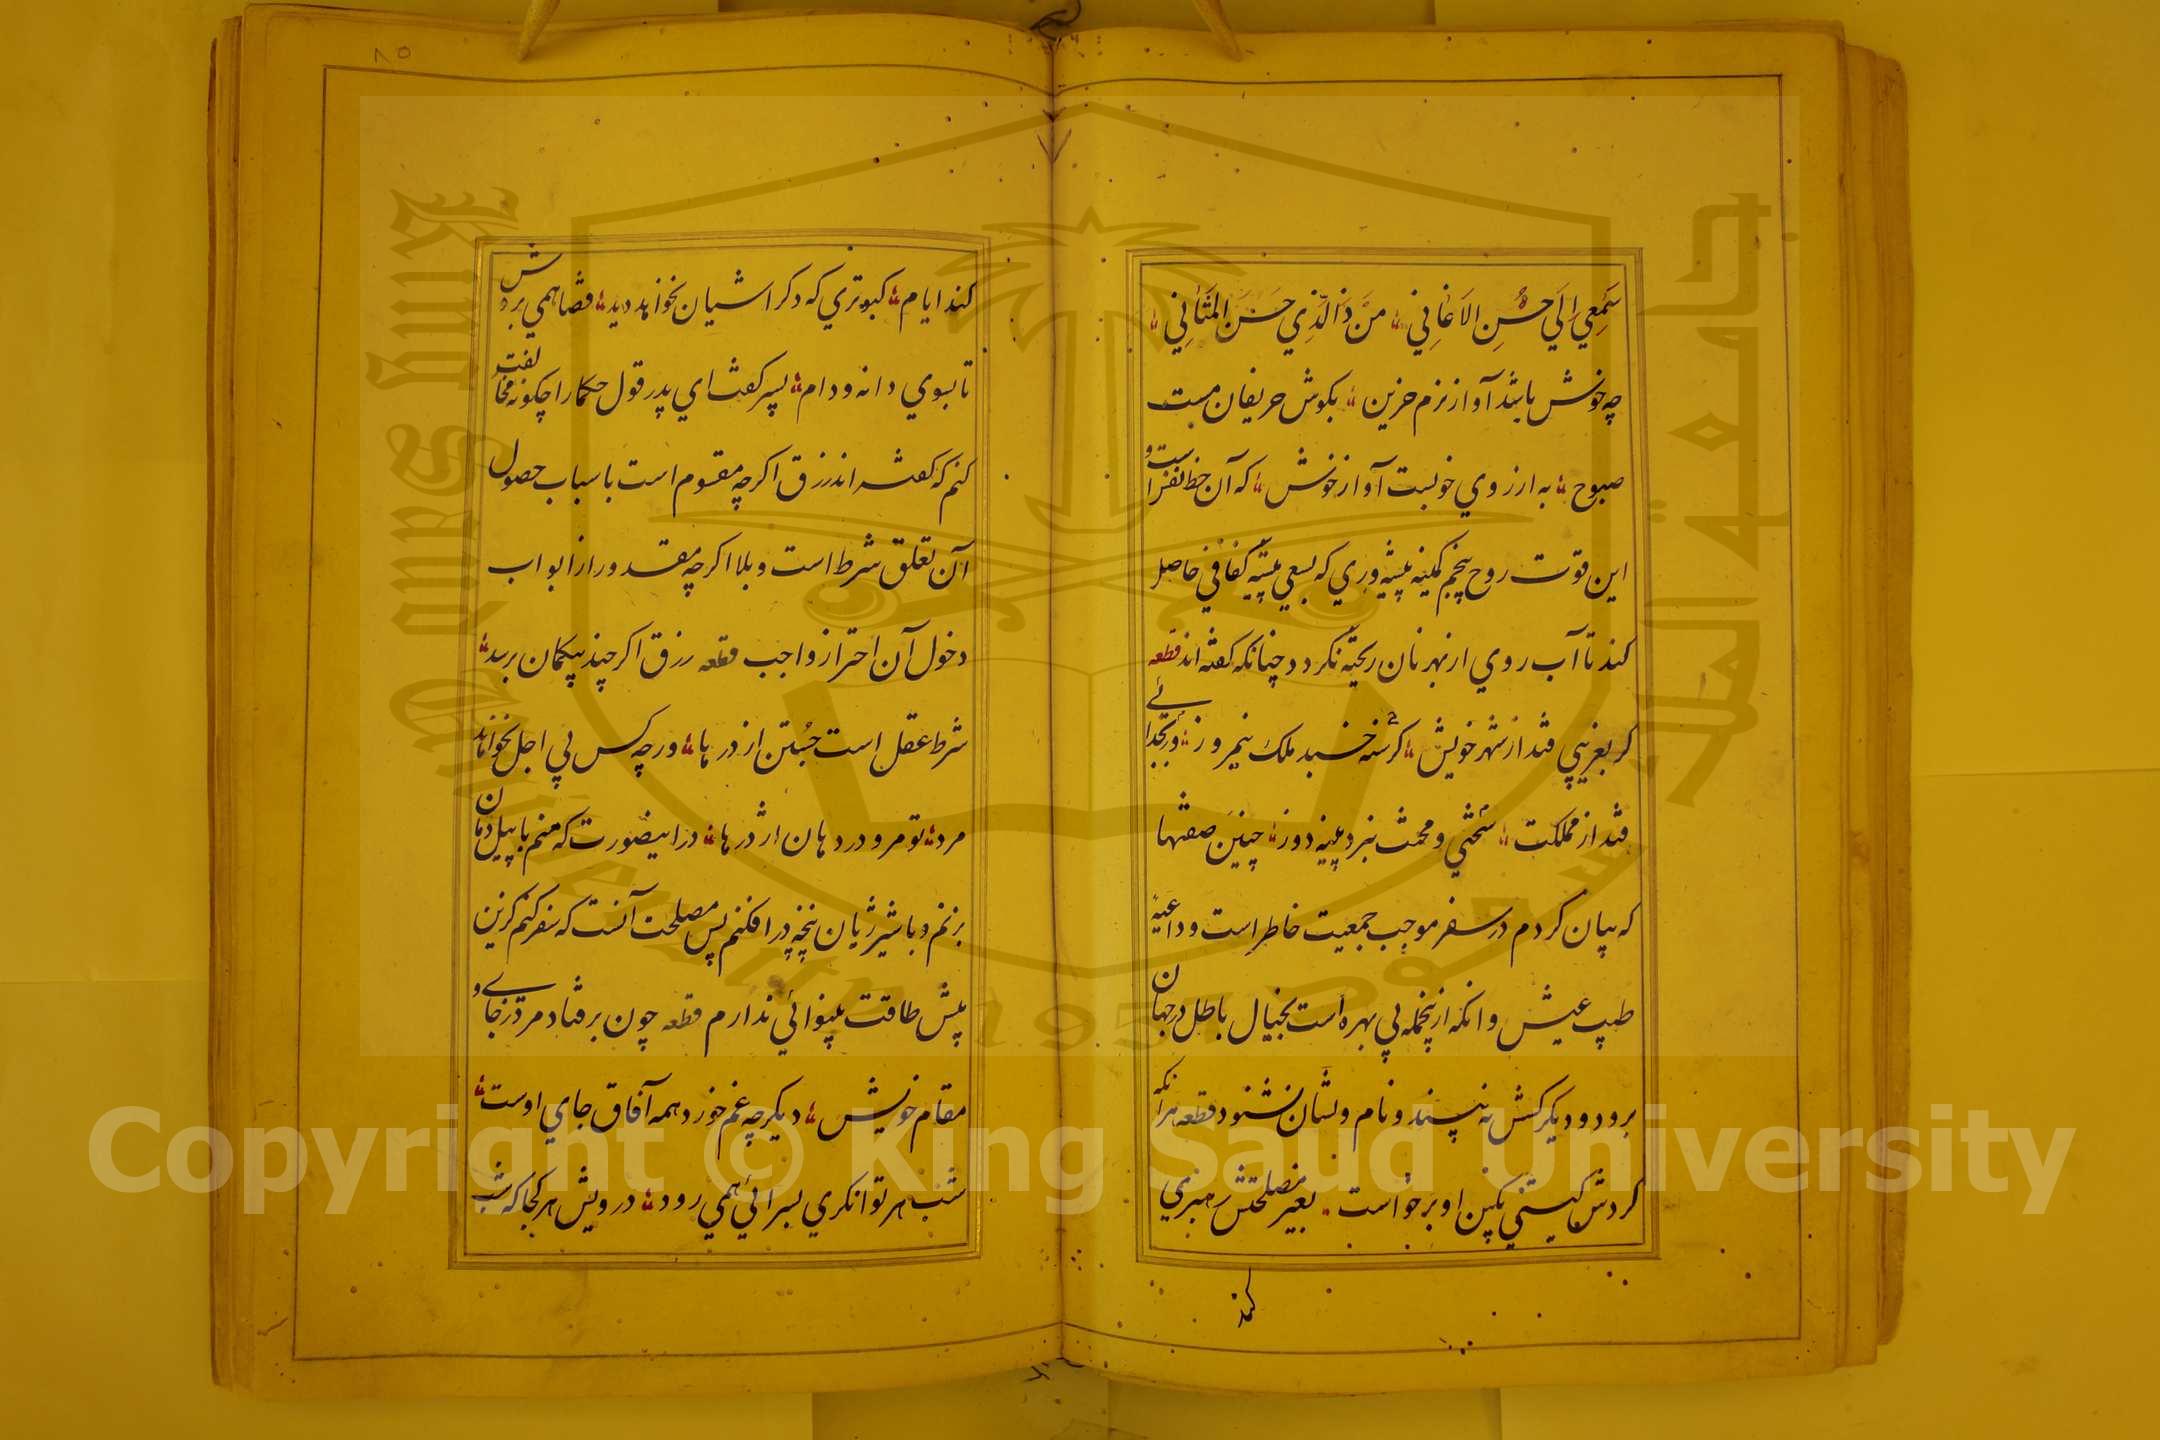 سَمْعِي اِلَي حُسْنِ الاَغَانِي مَنْ ذَا لَّذِي حَسَنَ المَثَانِي
چه خوش باشد آواز نرم حزین بکوش حریفان مست
صبوح به از روی خوبست آواز خوش که آن حظ نفس است و
این قوت روح پنجم کمینه پیشه وری که بسعی پیشه کفافی حاصل
کند تا آب روی از بهر نان ریخته نکردد چنانکه کفته اند قطعه
کر بغریبی فتد از شهر خویش کرسنه خسبد ملک نیمروز
فتد از مملکت سختی و محنت نبرد پینه دوز چنین صفتها
که بیان کردم در سفر موجب جمعیت خاطر است و داعیهٔ
طیب عیش و انکه ازینجمله بی بهره است بخیال باطل در جهان
برود و دیکر کسش نه پسندد و نام و نشان نشنود قطعه هر آنکه
کردش کیتی بکین او برخواست بغیر مصلحتش رهبری
کند
کند ایام کبوتری که دکر آشیان نخواهد دید قضا همی بردش
تا بسوی دانه و دام پسر کفت ای پدر قول حکما را چکونه مخالفت
کنم که کفته اند رزق اکرچه مقسوم است باسباب حصول
آن تعلق شرط است و بلا اکرچه مقدور از ابواب
دخول آن احتراز واجب قطعه رزق اکر چند بیکمان برسد
شرط عقل است جستن از درها ورچه کس بی اجل نخواهد
مرد تو مرو در دهان اژدرها درین صورت که منم با پیل دمان
بزنم و با شیر ژیان پنجه در افکنم پس مصلحت آنست که سفر کنم کزین
بیش طاقت بینوائی ندارم قطعه چون برفتاد مرد ز جای و
مقام خویش دیکر چه غم خورد همه آفاق جای اوست
شب هر توانکری بسرائی همی رود درویش هر کجا که شب
٨٥
جامعة الملك سعود
King Saud University
1957
Copyright © King Saud University